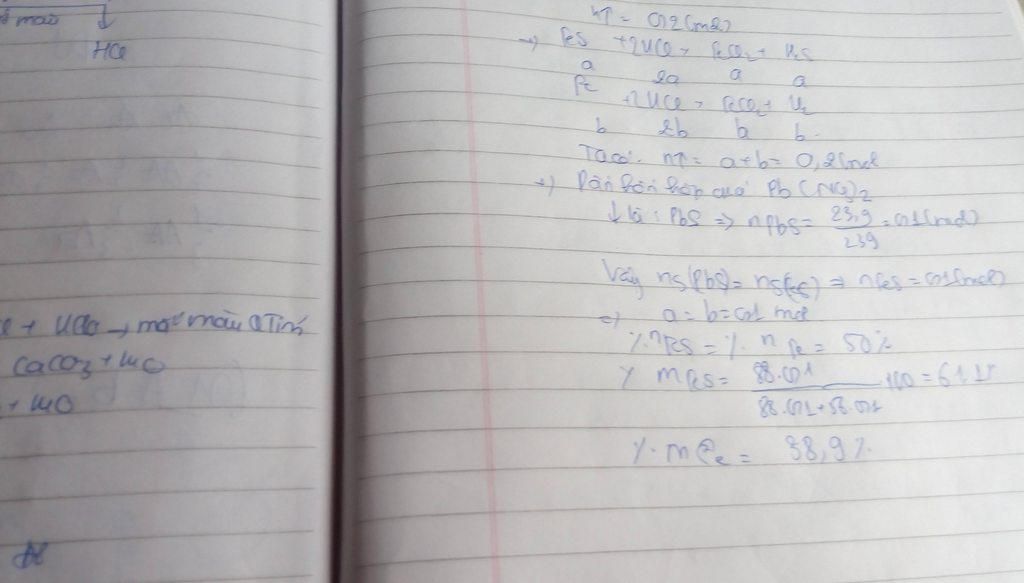 màu
HCl
+ HClO → mất màu QTím
CaCO3 + H2O
+ H2O
n↑ = 0,2 (mol)
→ FeS + 2HCl → FeCl2 + H2S
a 2a a a
Fe + 2HCl → FeCl2 + H2
b 2b b b
Ta có: n↑ = a + b = 0,2 mol
→ Dẫn hỗn hợp qua Pb(NO3)2
↓ là: PbS => nPbS = 23,9 / 239 = 0,1 (mol)
Vậy nS(PbS) = nS(FeS) => nFeS = 0,1 (mol)
=> a = b = 0,1 mol
% nFeS = % nFe = 50%
% mFeS = 88.0,1 / 88.0,1 + 56.0,1 .100 = 61,1
% mFe = 38,9%